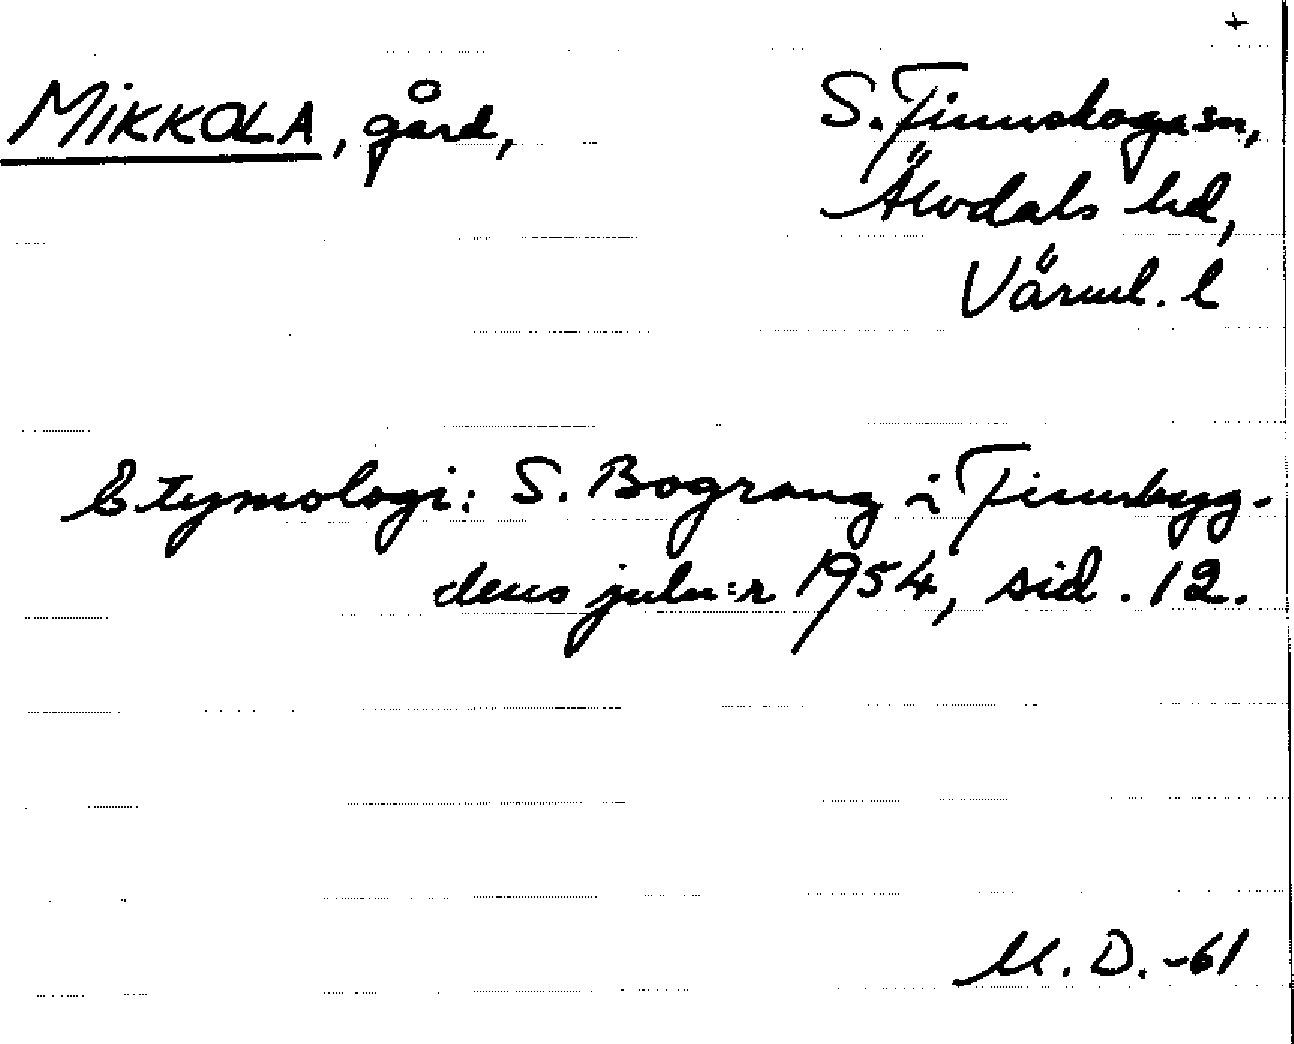 +
MIKKOLA, gård, S. Finnskoga sn,
Älvdals hd,
Värml. l
Etymologi: S. Bograng i Finnbyg-
dens juln:r 1954, sid. 12.
M. D. -61